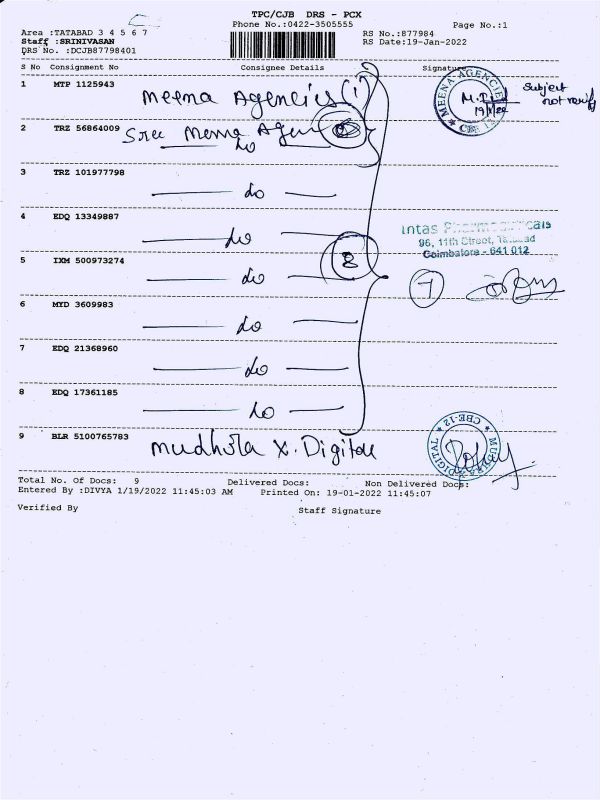 TPC/CJB DRS - PCX
Phone No.:0422-3505555
Page No.:1
Area :TATABAD 3 4 5 6 7
Staff :SRINIVASAN
DRS No. :DCJB87798401
RS No.:877984
RS Date:19-Jan-2022
S No Consignment No Consignee Details Signature
1 MTP 1125943 Meena Agencies (1)
MEENA AGENCIES
CBE 12
Subject
not
2 TRZ 56864009 Sree Agen
do
3 TRZ 101977798 do
4 EDQ 13349887 do
Intas
96, 11th Street,
Coimbatore - 641 012
5 IXM 500973274 do
8
7
6 MYD 3609983 do
7 EDQ 21368960 do
8 EDQ 17361185 do
9 BLR 5100765783 Mudhila X. Digital
CBE-12
Total No. Of Docs: 9 Delivered Docs: Non Delivered Docs:
Entered By :DIVYA 1/19/2022 11:45:03 AM Printed On: 19-01-2022 11:45:07
Verified By Staff Signature